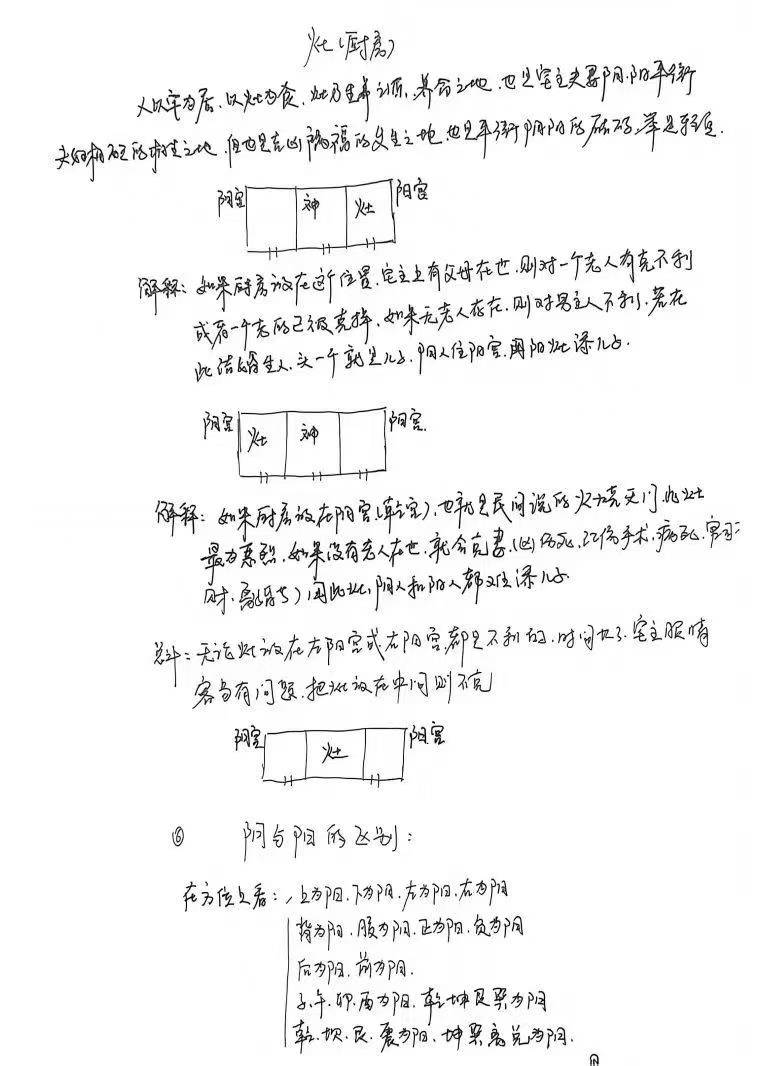 灶(厨房)
人以宅为居、以灶为食、灶乃生养之源、养命之地、也是宅主夫妻阴、阳平衡
夫妇相配的根基之地、但也是吉凶祸福的发生之地、也是平衡阴阳的砝码、举足轻重.
阴宫 神 灶 阳宫
解释: 如果厨房设在这个位置、宅主上有父母在世、则对一个老人有克不利
或有一个老的已被克掉、如果无老人存在、则对男主人不利、若在
此结婚生人、头一个就是儿子、阴人住阳宫、用阳灶添儿子.
阴宫 灶 神 阳宫
解释: 如果厨房设在阴宫(乾宫)、也就是民间说的火烧天门、此灶
最为恶烈、如果没有老人在世、就会克妻、(凶伤死、 手术、病死、官司
财、离婚等)用此灶、阴人和阳人都 添儿子.
总斗: 无论灶设在左阳宫或右阴宫、都是不利的、时间 、宅主眼睛
容易有问题、把灶设在中间则不克
阴宫 灶 阳宫
⑥ 阴与阳的区别:
在方位上看: 上为阳、下为阴、左为阳、右为阴
背为阳、腹为阴、正为阳、负为阴
后为阳、前为阴.
子、午、卯、酉为阳、乾坤艮巽为阴
乾、坎、艮、震为阳、坤巽离兑为阴.